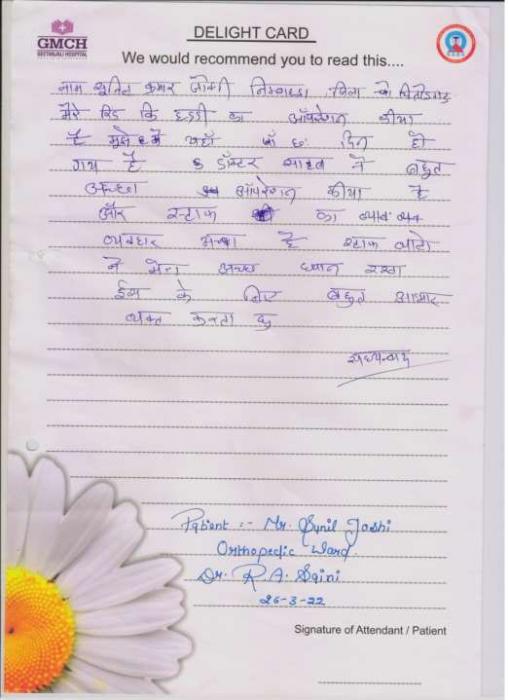 GMCH
GEETANJALI HOSPITAL
DELIGHT CARD
We would recommend you to read this....
नाम सुनिल कुमार जोशी निम्बाहेड़ा जिला चित्तोडगढ़
मेरे रिड कि हडडी का ऑपरेशन कीया
है मुझे यहाँ छः दिन हो
गये है डॉक्टर साहब ने बहुत
अच्छा ऑपरेशन कीया है
और स्टाफ का
व्यवहार अच्छा है स्टाफ वालो
ने मेरा अच्छा ध्यान रखा
ईस के लिए बहुत आभार
व्यक्त करता हु
धन्यवाद
Patient :- Mr. Sunil Joshi
Orthopedic Ward.
Dr. R.A. Saini
26-3-22
Signature of Attendant / Patient